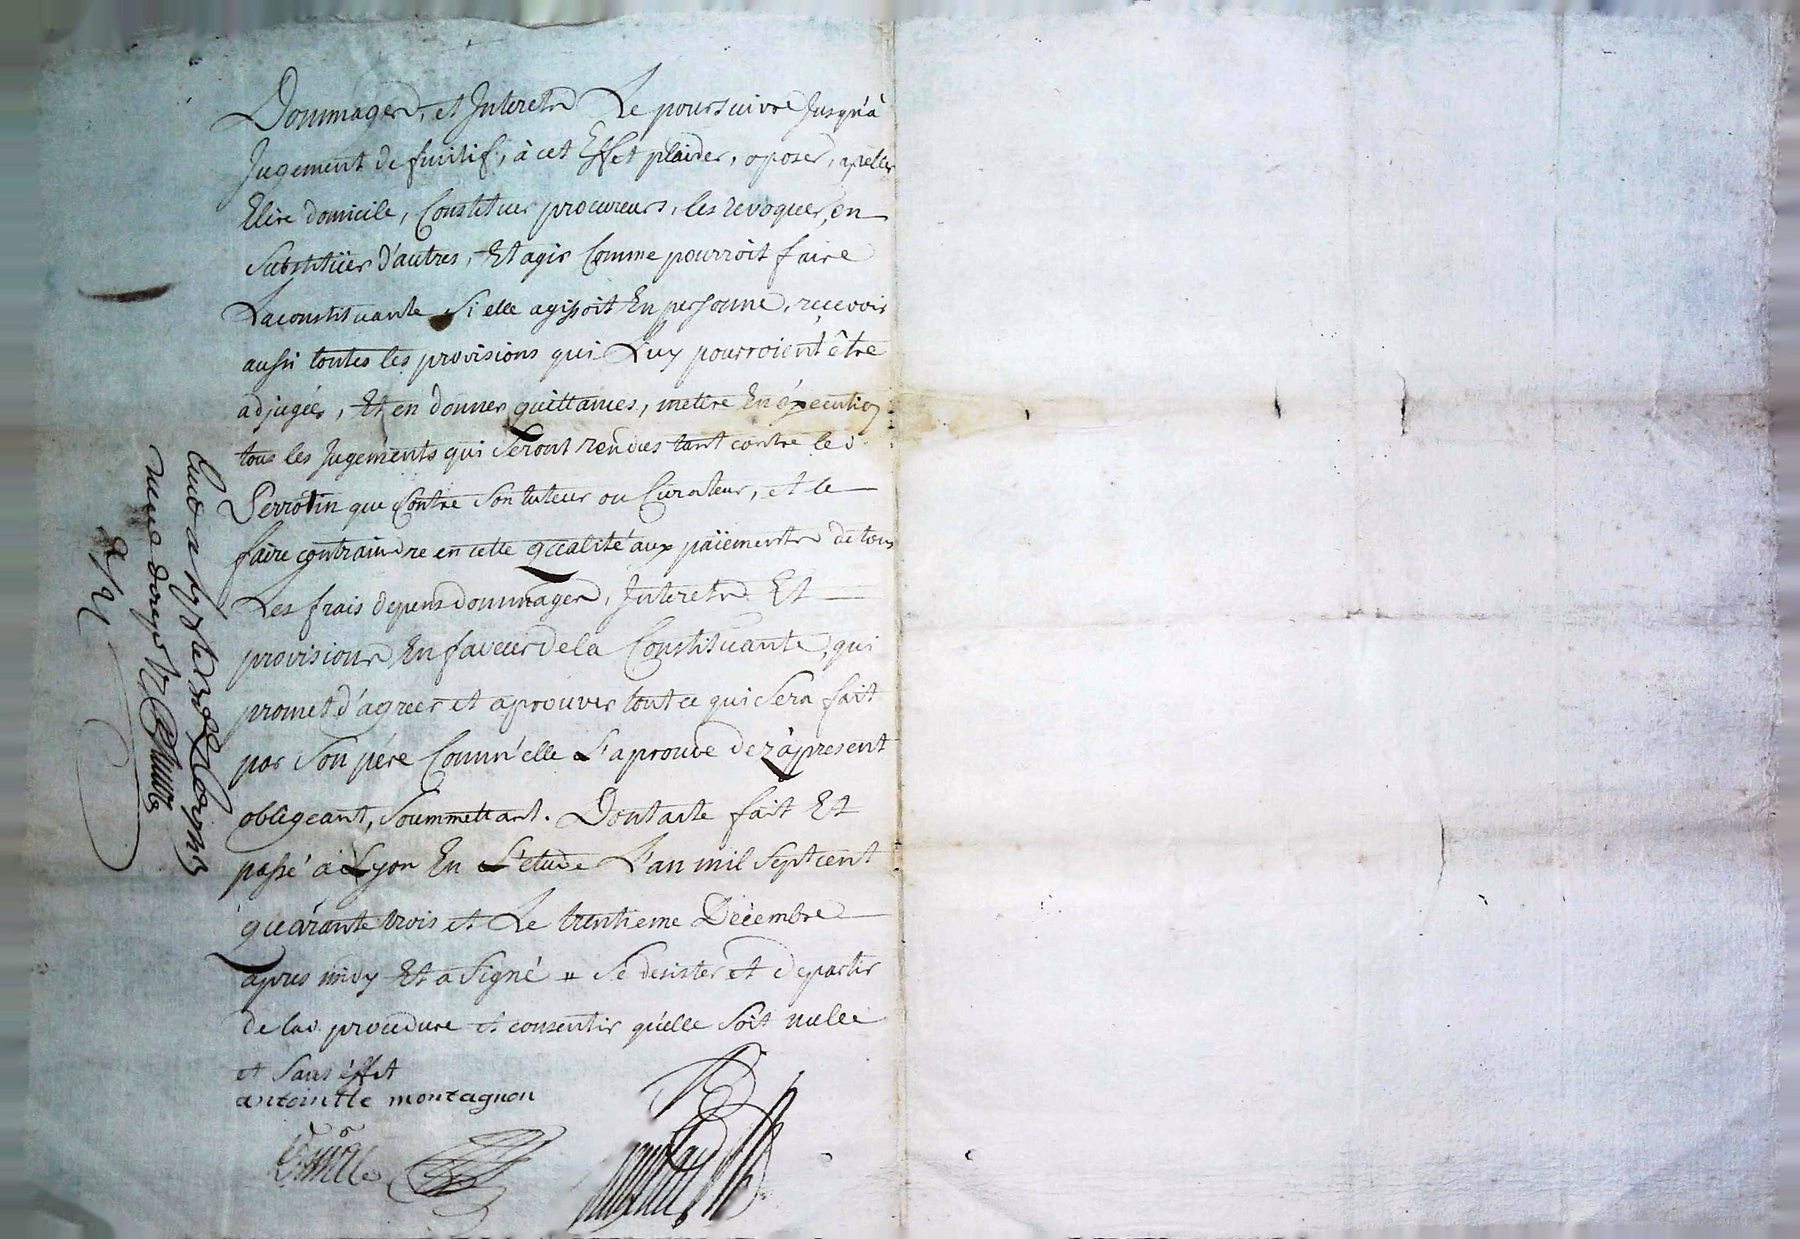 Dommages, et Interets Le poursuivre Jusqu'à
Jugement definitif, à cet Effet plaider, oposer, apeller
Elire domicile, Constituer procureurs, les revoquer, en
Substituer d'autres, Et agir Comme pourroit faire
Laconstituante Si elle agissoit En personne, recevoir
aussi toutes les provisions qui Luy pourroient être
adjugées, Et en donner quittances, metre En éxecution
tous les Jugements qui Seront rendus tant contre led.
Perrotin que Contre Son tuteur ou Curateur, et le
faire contraindre en cette qualité aux païements de tous
Les frais depens dommages, Interets Et
provisions En faveur de la Constituante, qui
promet d'agreer et aprouver tout ce qui Sera fait
par Son pére Comm'elle L'aprouve dez àpresent
obligeant, Soummettant. Dont acte fait Et
passé à Lyon En L'etude L'an mil Sept cent
quarante trois et Le trentieme Décembre
apres midy Et a Signé = Se desister et departir
de lad. procedure et consentir qu'elle Soit nulle
et Sans éffet
antoinette montagnon